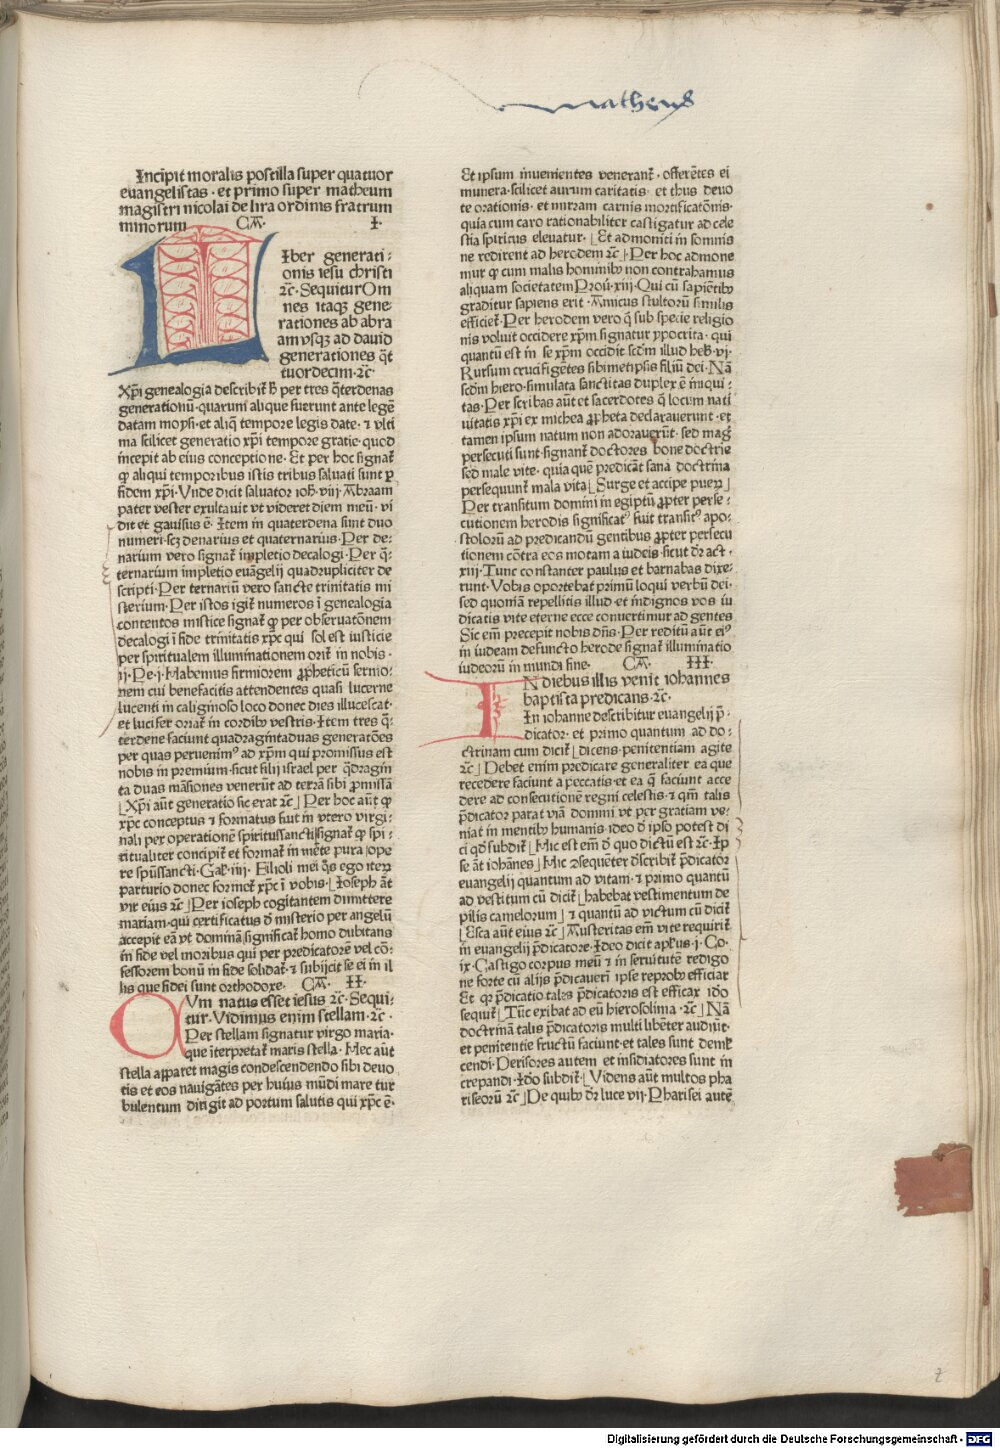 matheus
Incipit moralis postilla super quatuor
euangelistas · et primo super matheum
magistri nicolai de lira ordinis fratrum
minorum CA͞. I·
LIber generati⸗
onis iesu christi
⁊c̄· Sequitur Om
nes itaqꝫ gene
rationes ab abra
am vsqꝫ ad dauid
generationes q̄t
tuordecim·⁊c̄·
Xp̄i genealogia describit᷑ h̄ per tres q̄terdenas
generationū·quarum alique fuerunt ante legē
datam moysi·et aliq̄ tempore legis date·⁊ vlti
ma scilicet generatio xp̄i tempore gratie·quod
incepit ab eius conceptione·Et per hoc signat᷑
ꝙ aliqui temporibus istis tribus saluati sunt ꝑ
fidem xp̄i·Vnde dicit saluator ioh̄·viij·Abraam
pater vester exultauit vt videret diem meū·vi
dit et gauisus ē·Item in quaterdena sunt duo
numeri·scꝫ denarius et quaternarius·Per de⸗
narium vero signat᷑ impletio decalogi·Per q̄⸗
ternarium impletio euāgelij quadrupliciter de
scripti·Per ternariū vero sancte trinitatis mi
sterium·Per istos igit᷑ numeros ī genealogia
contentos mistice signat᷑ ꝙ per obseruatōnem
decalogi ī fide trinitatis xp̄c qui sol est iusticie
per spiritualem illuminationem orit᷑ in nobis·
ij·Pe·j·Habemus firmiorem ꝓpheticū sermo⸗
nem cui benefacitis attendentes quasi lucerne
lucenti in caliginoso loco donec dies illucescat·
et lucifer oriat᷑ in cordibꝰ vestris·Item tres q̄⸗
terdene faciunt quadragintaduas generatōes
per quas peruenimꝰ ad xp̄m qui promissus est
nobis in premium·sicut filij israel per q̄dragin
ta duas māsiones venerūt ad terrā sibi ꝓmissā
⌊Xp̄i aūt generatio sic erat ⁊c̄⌋Per hoc aūt ꝙ
xp̄c conceptus ⁊ formatus fuit in vtero virgi⸗
nali per operationē spiritussancti signat᷑ ꝙ spi⸗
ritualiter concipit᷑ et format᷑ in mēte pura ope
re spūssancti·Gal̄·iiij·Filioli mei q̄s ego iteꝝ
parturio donec formet᷑ xp̄c ī vobis·⌊Ioseph āt
vir eius ⁊c̄⌋Per ioseph cogitantem dimittere
mariam·qui certificatus d̄ misterio per angelū
accepit eā vt dominā significat᷑ homo dubitans
in fide vel moribus qui per predicatorē vel cō⸗
fessorem bonū in fide solidat᷑·⁊ subijcit se ei in il
lis que fidei sunt orthodoxe· CA͞. II·
CVm natus esset iesus ⁊c̄·Sequi⸗
tur·Vidimus enim stellam·⁊c̄·
Per stellam signatur virgo maria·
que īterpretat᷑ maris stella·Hec aūt
stella apparet magis condescendendo sibi deuo
tis et eos nauigātes per huius mūdi mare tur
bulentum dirigit ad portum salutis qui xp̄c ē·
Et ipsum inuenientes venerant᷑·offerētes ei
munera·scilicet aurum caritatis·et thus deuo
te orationis·et mirram carnis mortificatōnis·
quia cum caro rationabiliter castigatur ad cele
stia spiritus eleuatur·⌊Et admoniti in somnis
ne redirent ad herodem ⁊c̄⌋·Per hoc admone
mur ꝙ cum malis hominibꝰ non contrahamus
aliquam societatem Prou̅·xiij·Qui cū sapiētibꝰ
graditur sapiens erit·Amicus stultorū similis
efficiet᷑·Per herodem vero q̄ sub specie religio
nis voluit occidere xp̄m signatur ypocrita·qui
quantū est in se xp̄m occidit scd̄m illud heb̄·vj·
Rursum crucifigētes sibimetipsis filiū dei·Nā
scd̄m hiero·simulata sanctitas duplex ē iniqui⸗
tas·Per scribas aūt et sacerdotes q̄ locum nati
uitatis xp̄i ex michea ꝓpheta declarauerunt·et
tamen ipsum natum non adorauerūt·sed mag᷑
persecuti sunt·signant᷑ doctores bone doctrie
sed male vite·quia quē predicāt sana doctrina
persequunt᷑ mala vita⌊Surge et accipe pueꝝ⌋
Per transitum domini in egiptū ꝓpter perse⸗
cutionem herodis significatꝰ fuit transitꝰ apo⸗
stolorū ad predicandū gentibus ꝓpter persecu
tionem cōtra eos motam a iudeis·sicut dr̄ act·
xiij·Tunc constanter paulus et barnabas dixe⸗
runt·Vobis oportebat primū loqui verbū dei·
sed quoniā repellitis illud·et indignos vos iu
dicatis vite eterne ecce conuertimur ad gentes
Sic em̄ precepit nobis dn̄s·Per reditū aūt eiꝰ
in iudeam defuncto herode signat᷑ illuminatio
iudeorū in mundi fine· CA͞. III·
IN diebus illis venit iohannes
baptista predicans·⁊c̄·
In iohanne describitur euangelij p̄⸗
dicator·et primo quantum ad do⸗
ctrinam cum dicit᷑⌊dicens·penitentiam agite
⁊c̄⌋Debet enim predicare generaliter ea que
recedere faciunt a peccatis·et ea q̄ faciunt acce
dere ad consecutionē regni celestis·⁊ qm̄ talis
p̄dicator parat viā domini vt per gratiam ve⸗
niat in mentibꝰ humanis·ideo d̄ ipso potest di
ci qd̄ subdit᷑⌊Hic est em̄ d̄ quo dictū est ⁊c̄·Ip
se āt iohānes⌋Hic ꝯsequēter d̄scribit᷑ p̄dicator
euangelij quantum ad vitam·⁊ primo quantū
ad vestitum cū dicit᷑⌊habebat vestimentum de
pilis camelorum⌋⁊ quantū ad victum cū dicit᷑
⌊Esca aūt eius ⁊c̄⌋Austeritas em̄ vite requirit᷑
in euangelij p̄dicatore·Ideo dicit apl̄us·j·Co·
ix·Castigo corpus meū ⁊ in seruitutē redigo
ne forte cū alijs p̄dicauerī ipse reprobꝰ efficiar
Et qꝛ p̄dicatio talis p̄dicatoris est efficax ido
sequit᷑⌊Tūc exibat ad eū hierosolima·⁊c̄⌋Nā
doctrinā talis p̄dicatoris multi libēter audiūt·
et penitentie fructū faciunt·et tales sunt demū
cendi·Derisores autem et insidiatores sunt in
crepandi·Ido subdit᷑⌊Videns aūt multos pha
riseorū ⁊c̄⌋De quibꝰ dr̄ luce vij·Pharisei autē
2
Digitalisierung gefördert durch die Deutsche Forschungsgemeinschaft - DFG